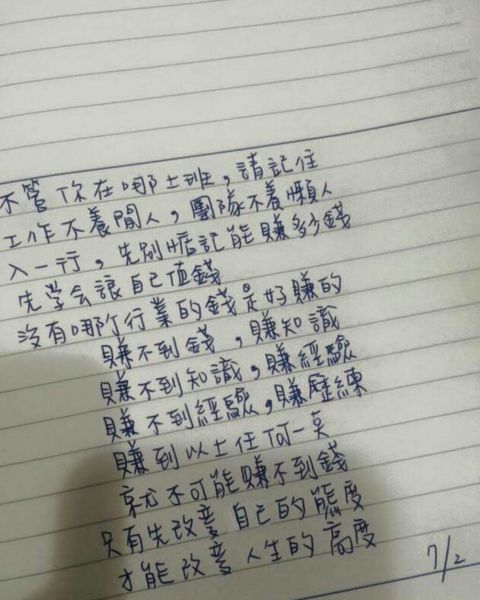 不管你在哪上班，請記住
工作不養閒人，團隊不養懶人
入一行，先別惦記能賺多少錢
先学会讓自己值錢
沒有哪个行業的錢是好賺的
賺不到錢，賺知識
賺不到知識，賺經驗
賺不到經驗，賺歷練
賺到以上任何一莫
就不可能賺不到錢
只有先改變自己的態度
才能改變人生的高度
7/2